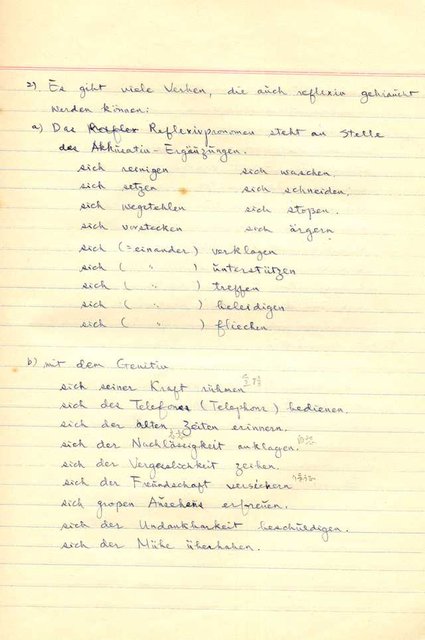 2) Es gibt viele Verben, die auch reflexiv gebraucht
werden können:
a) Das Reflexivpronomen steht an Stelle
der Akkusativ-Ergänzungen.
sich reinigen sich waschen.
sich setzen sich schneiden.
sich wegstehlen sich stoßen.
sich verstecken sich ärgern
sich (=einander) verklagen
sich ( " ) unterstützen
sich ( " ) treffen
sich ( " ) beleidigen
sich ( " )
b) mit dem Genitiv
sich seiner Kraft rühmen
sich des Telefons (Telephons) bedienen.
sich der alten Zeiten erinnern.
sich der Nachlässigkeit anklagen.
sich der Vergeßlichkeit zeihen.
sich der Freundschaft versichern
sich großen Ansehens erfreuen.
sich der Undankbarkeit beschuldigen.
sich der Mühe überheben.